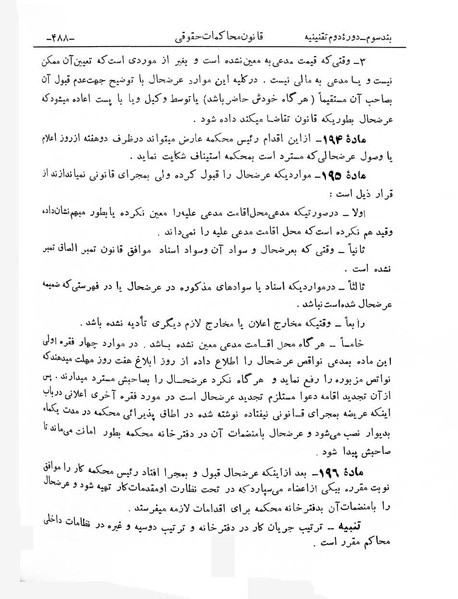 بند سوم ـ دورهٔ دوم تقنینیه قانون محاکمات حقوقی -۴۸۸-
۳ ـ وقتی که قیمت مدعی به معین نشده است و بغیر از موردی است که تعیین آن ممکن
نیست و یا مدعی به مالی نیست . در کلیه این موارد عرضحال با توضیح جهت عدم قبول آن
بصاحب آن مستقیماً (هر گاه خودش حاضر باشد) یا توسط وکیل و یا با پست اعاده میشود که
عرضحال بطوریکه قانون تقاضا میکند داده شود .
مادهٔ ۱۹۴ـ از این اقدام رئیس محکمه عارض میتواند در ظرف دو هفته از روز اعلام
یا وصول عرضحالی که مسترد است بمحکمه استیناف شکایت نماید .
مادهٔ ۱۹۵ـ مواردیکه عرضحال را قبول کرده ولی بمجرای قانونی نمیاندازند از
قرار ذیل است :
اولا ـ در صورتیکه مدعی محل اقامت مدعی علیه را معین نکرده یا بطور مبهم نشان داده
وقید هم نکرده است که محل اقامت مدعی علیه را نمی‌داند .
ثانیاً ـ وقتی که بعرضحال و سواد آن و سواد اسناد موافق قانون تمبر الصاق تمبر
نشده است .
ثالثاً ـ در مواردیکه اسناد یا سوادهای مذکوره در عرضحال یا در فهرستی که ضمیمه
عرضحال شده است نباشد .
رابعاً ـ وقتیکه مخارج اعلان یا مخارج لازم دیگری تأدیه نشده باشد .
خامساً ـ هر گاه محل اقامت مدعی معین نشده باشد . در موارد چهار فقره اولی
این ماده بمدعی نواقص عرضحال را اطلاع داده از روز ابلاغ هفت روز مهلت میدهند که
نواقص مزبوره را رفع نماید و هر گاه نکرد عرضحال را بصاحبش مسترد میدارند . پس
از آن تجدید اقامه دعوا مستلزم تجدید عرضحال است در مورد فقره آخری اعلانی در باب
اینکه عریضه بمجرای قانونی نیفتاده نوشته شده در اطاق پذیرائی محکمه در مدت یکماه
بدیوار نصب می‌شود و عرضحال بامنضمات آن در دفترخانه محکمه بطور امانت می‌ماند تا
صاحبش پیدا شود .
مادهٔ ۱۹۶ـ بعد از اینکه عرضحال قبول و بمجرا افتاد رئیس محکمه کار را موافق
نوبت مقرره بیکی از اعضاء می‌سپارد که در تحت نظارت او مقدمات کار تهیه شود و عرضحال
را بامنضمات آن بدفترخانه محکمه برای اقدامات لازمه میفرستد .
تنبیه ـ ترتیب جریان کار در دفترخانه و ترتیب دوسیه و غیره در نظامات داخلی
محاکم مقرر است .